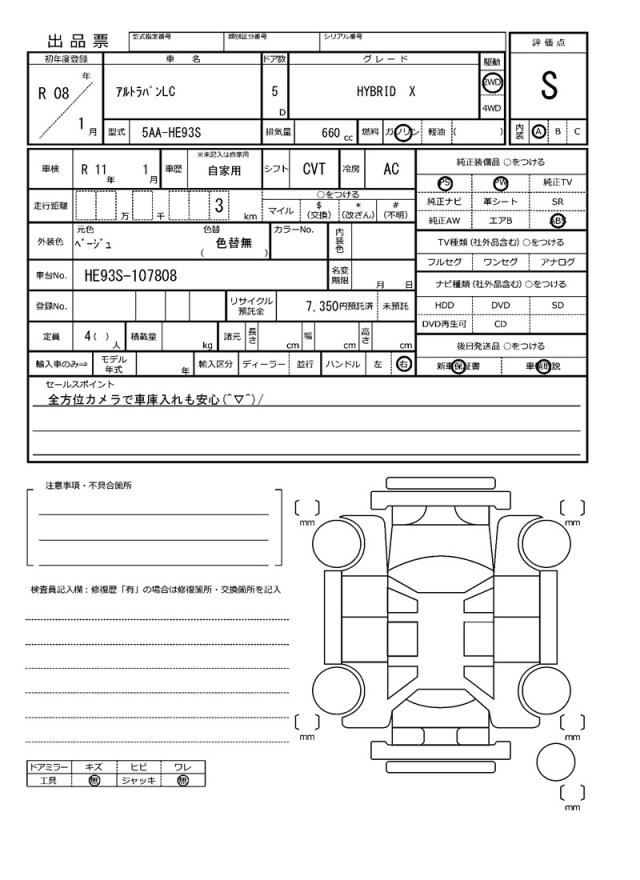 出品票 型式指定番号 類別区分番号 シリアル番号
評価点
S
内装 A B C
初年度登録 車名 ドア数 グレード 駆動
R 08 年 1 月
アルトラパンLC 5 D HYBRID X 2WD 4WD
型式 5AA-HE93S 排気量 660 cc 燃料 ガソリン 軽油 ( )
車検 R 11 年 1 月 車歴 ※未記入は自家用 自家用 シフト CVT 冷房 AC
走行距離 万 千 3 km
○をつける
マイル $(交換) *(改ざん) #(不明)
外装色 元色 ベージュ 色替 色替無 ( ) カラーNo. 内装色
車台No. HE93S-107808 名変期限 月 日
登録No. リサイクル預託金 7,350円預託済 未預託
定員 4( )人 積載量 kg 諸元 長さ cm 幅 cm 高さ cm
輸入車のみ⇒ モデル年式 年 輸入区分 ディーラー 並行 ハンドル 左 右
純正装備品 ○をつける
PS PW 純正TV
純正ナビ 革シート SR
純正AW エアB ABS
TV種類(社外品含む)○をつける
フルセグ ワンセグ アナログ
ナビ種類(社外品含む)○をつける
HDD DVD SD
DVD再生可 CD
後日発送品 ○をつける
新車保証書 車輌取説
セールスポイント
全方位カメラで車庫入れも安心(^▽^)/
注意事項・不具合箇所
検査員記入欄：修復歴「有」の場合は修復箇所・交換箇所を記入
ドアミラー キズ ヒビ ワレ
工具 無 ジャッキ 無
mm
mm
mm
mm
mm